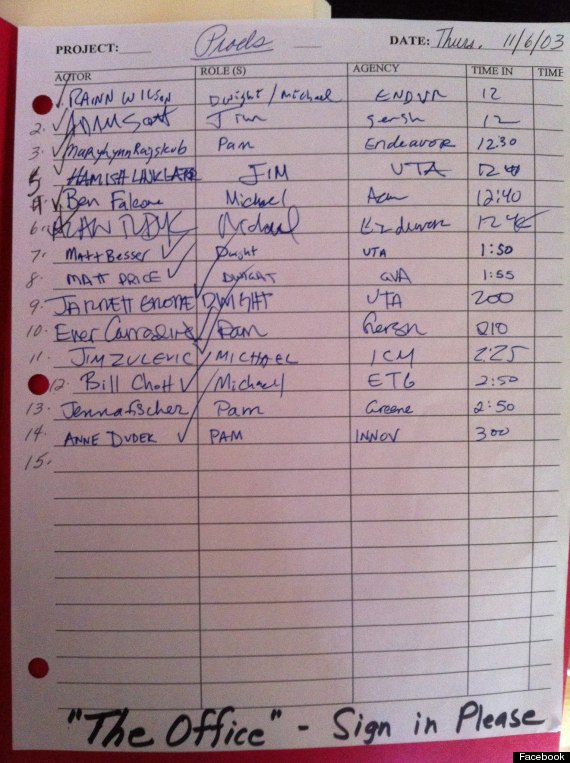 PROJECT: Prods DATE: Thurs. 11/6/03
ACTOR ROLE (S) AGENCY TIME IN TIME
RAINN WILSON Dwight / Michael ENDVR 12
2. ADAM SCOTT Jim gersh 12
3. MaryLynn Rajskub Pam Endeavor 12:30
5 HAMISH LINKLATER JIM UTA
4. Ben Falcone Michael 12:40
6. ALAN TUDYK Michael Endeavor
7. Matt Besser Dwight UTA 1:50
8. MATT PRICE DWIGHT GVA 1:55
9. DWIGHT UTA 200
10. Ever Carradine Pam Gersh 210
11. JIM ZULEVIC MICHAEL ICM 2:25
12. Bill Chott Michael ETG 2:50
13. Jenna Fischer Pam Greene 2:50
14. ANNE DUDEK PAM INNOV 300
15.
"The Office" - Sign in Please
Facebook